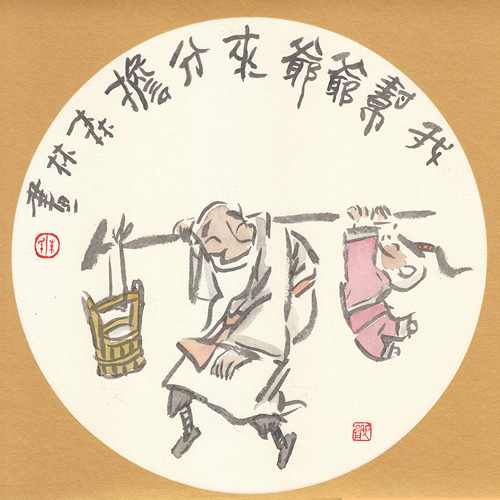 我幫爺爺來分擔 森林畫